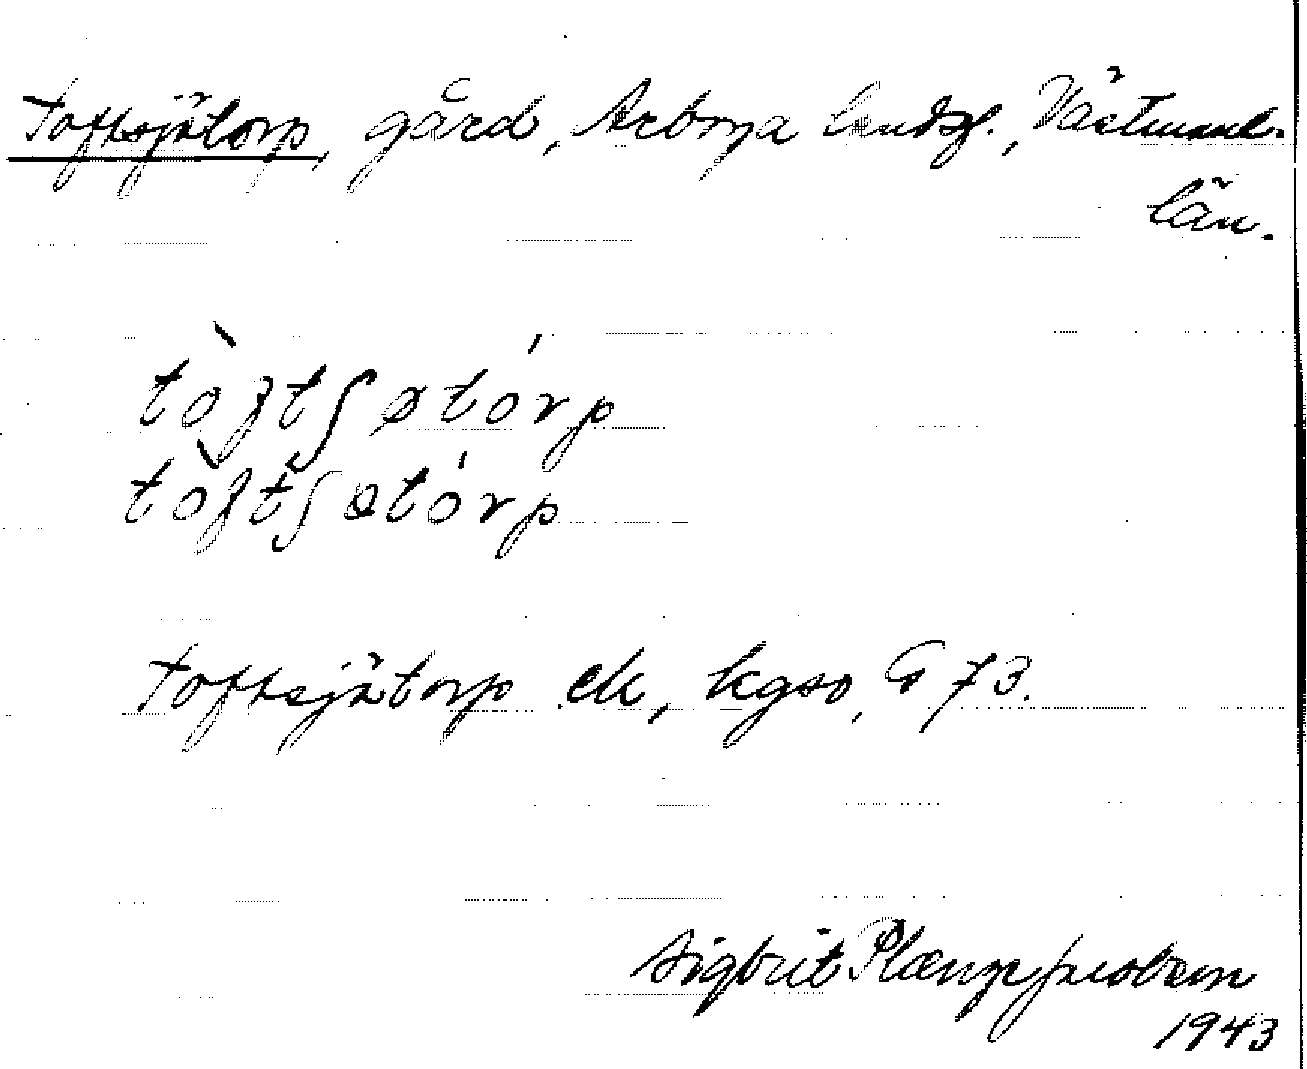 Toftsjötorp, gård, Arboga landsf., Västmanl.
län.
tòftʃøtórp
tòftʃətórp
Toftsjötorp ek, kgso, G 73.
Sigbrit Plænge Jacobson
1943